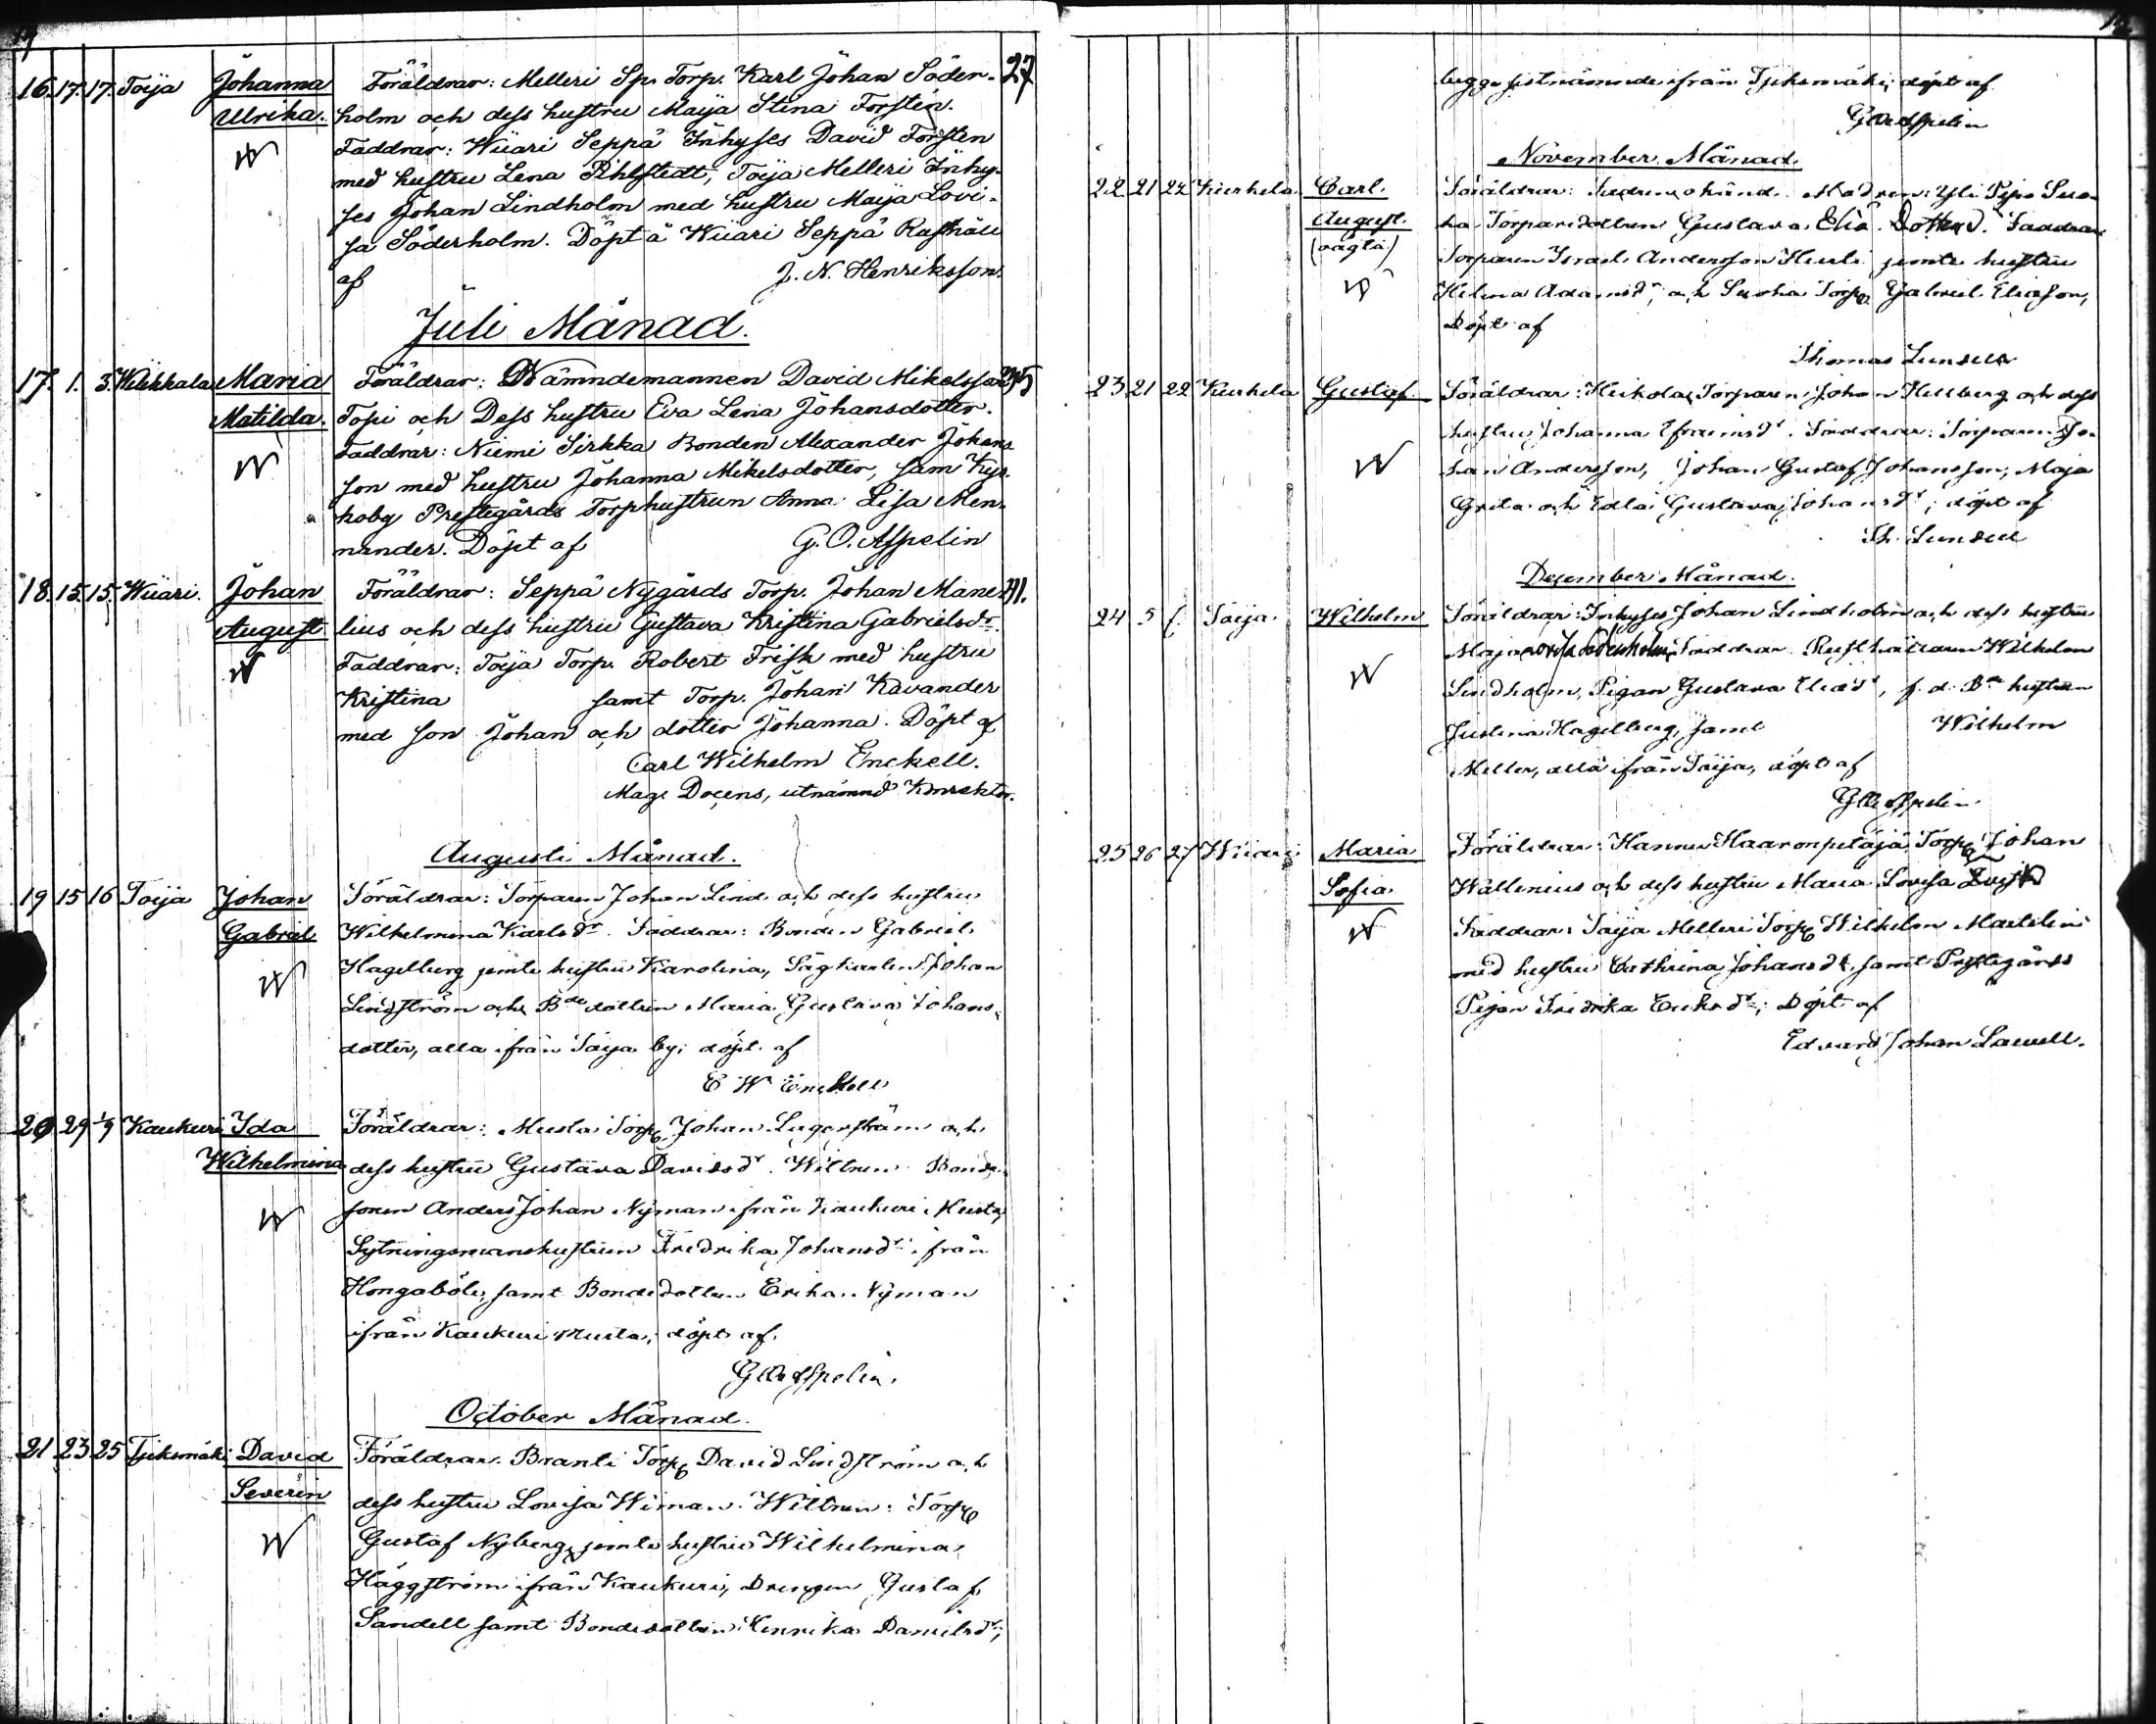 16. 17. 17. Toija Johanna Föräldrar: Melleri Sp. Torp. Karl Johan Söder- 27
Ulrika. holm och dess hustru Maija Stina Forstén.
Faddrar: Wiiari Seppä Inhyses David Forstén
med hustru Lena Pihlstedt, Toija Melleri Inhy-
ses Johan Lindholm med hustru Maija Lovi-
sa Söderholm. Döpt å Wiiari Seppä Rusthåll
af J. N. Henriksson.
Juli Månad.
17. 1. 3. Maria Föräldrar: Nämndemannen David Mikelsson
Matilda. Topi och Dess hustru Eva Lena Johansdotter.
Faddrar: Niemi Sirkka Bonden Alexander Johans
son med hustru Johanna Mikelsdotter, sam Kyr-
koby Prestegårds Torphustrun Anna Lisa Men-
nander. Döpt af G. O. Aspelin
18. 15. 15. Wiiari. Johan Föräldrar: Seppä Nygårds Torp. Johan Mane
August lius och dess hustru Gustava Kristina Gabrielsdr.
Faddrar: Toija Torp. Robert Frisk med hustru
Kristina samt Torp. Johan Kavander
med son Johan och dotter Johanna. Döpt af
Carl Wilhelm Enckell.
Mag. Docens, utnämnd Konrektor.
Augusti Månad.
19 15 16 Toija Johan Föräldrar: Torparen Johan Lind och dess hustru
Gabriel Wilhelmina Karlsdr. Faddrar: Bonden Gabriel
Hagelberg jemte hustru Karolina, Johan
Lindström och Bde dottren Maria Gustava Johans-
dotter, alla från Toija by; döpt af
C W Enckell
20 29 1/9 Kaukuri Ida Föräldrar: Musta Torp. Johan Lagerström och
Wilhelmina dess hustru Gustava Davidsdr. Wittnen: Bonde-
sonen Anders Johan Nyman från Kaukuri Musta,
Sytningsmanshustrun Fredrika Johansdr. från
Hongaböle, samt Bondedottren Erika Nyman
ifrån Kaukuri Musta; döpt af
G O Aspelin.
October Månad.
21 23 25 Tjuksmäki David Föräldrar. Branti Torp. David Lindström och
Severin dess hustru Lovisa Wiman. Wittnen: Torp.
Gustaf Nyberg jemte hustru Wilhelmina
Häggström ifrån Kaukuri, Drengen Gustaf
Sandell samt Bondedottren Henrika Danielsdr;
begge sistnämnde ifrån döpt af
G O Aspelin
November Månad.
22 21 22 Kurkela Carl Föräldrar: Fadren okänd. Modren: Yli Pipo Suo-
August. ha Torparedottren Gustava Elia Dotter. Faddrar
(oägta) Torparen Israel Andersson jemte hustru
Helena Adamsdr, och Suoha Torp. Gabriel Eliasson,
Döpt af
Thomas
23 21 22 Kurkela Gustaf Föräldrar: Heikola Torparen Johan Hellberg och dess
hustru Johanna Efraimsdr. Faddrar: Torparen Jo-
han Andersson, Johan Gustaf Johansson, Maja
Greta och Edla Gustava Johansdr; döpt af
Th.
December Månad.
24 5 Toija. Wilhelm Föräldrar: Inhyses Johan Lindholm och dess hustru
Maja Lovisa Söderholm. Faddrar Rusthållaren Wilhelm
Lindholm, Pigan Gustava Eliasdr, f. d. Bde hustrun
Justina Hagelberg, samt Wilhelm
Meller, alla ifrån Toija, döpt af
G O Aspelin.
25 26 27 Wiiari Maria Föräldrar: Hannu Haaronpetäjä Torp. Johan
Sofia Wallenius och dess hustru Maria Lovisa
Faddrar: Toija Melleri Torp. Wilhelm Martelin
med hustru Cathrina Johansdr. samt Prestegårds
Pigan Fredrika Eriksdr; Döpt af
Edvard Johan